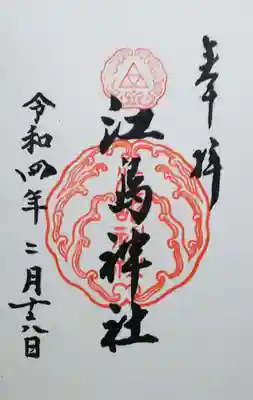 奉拝
江島神社
令和四年二月十八日